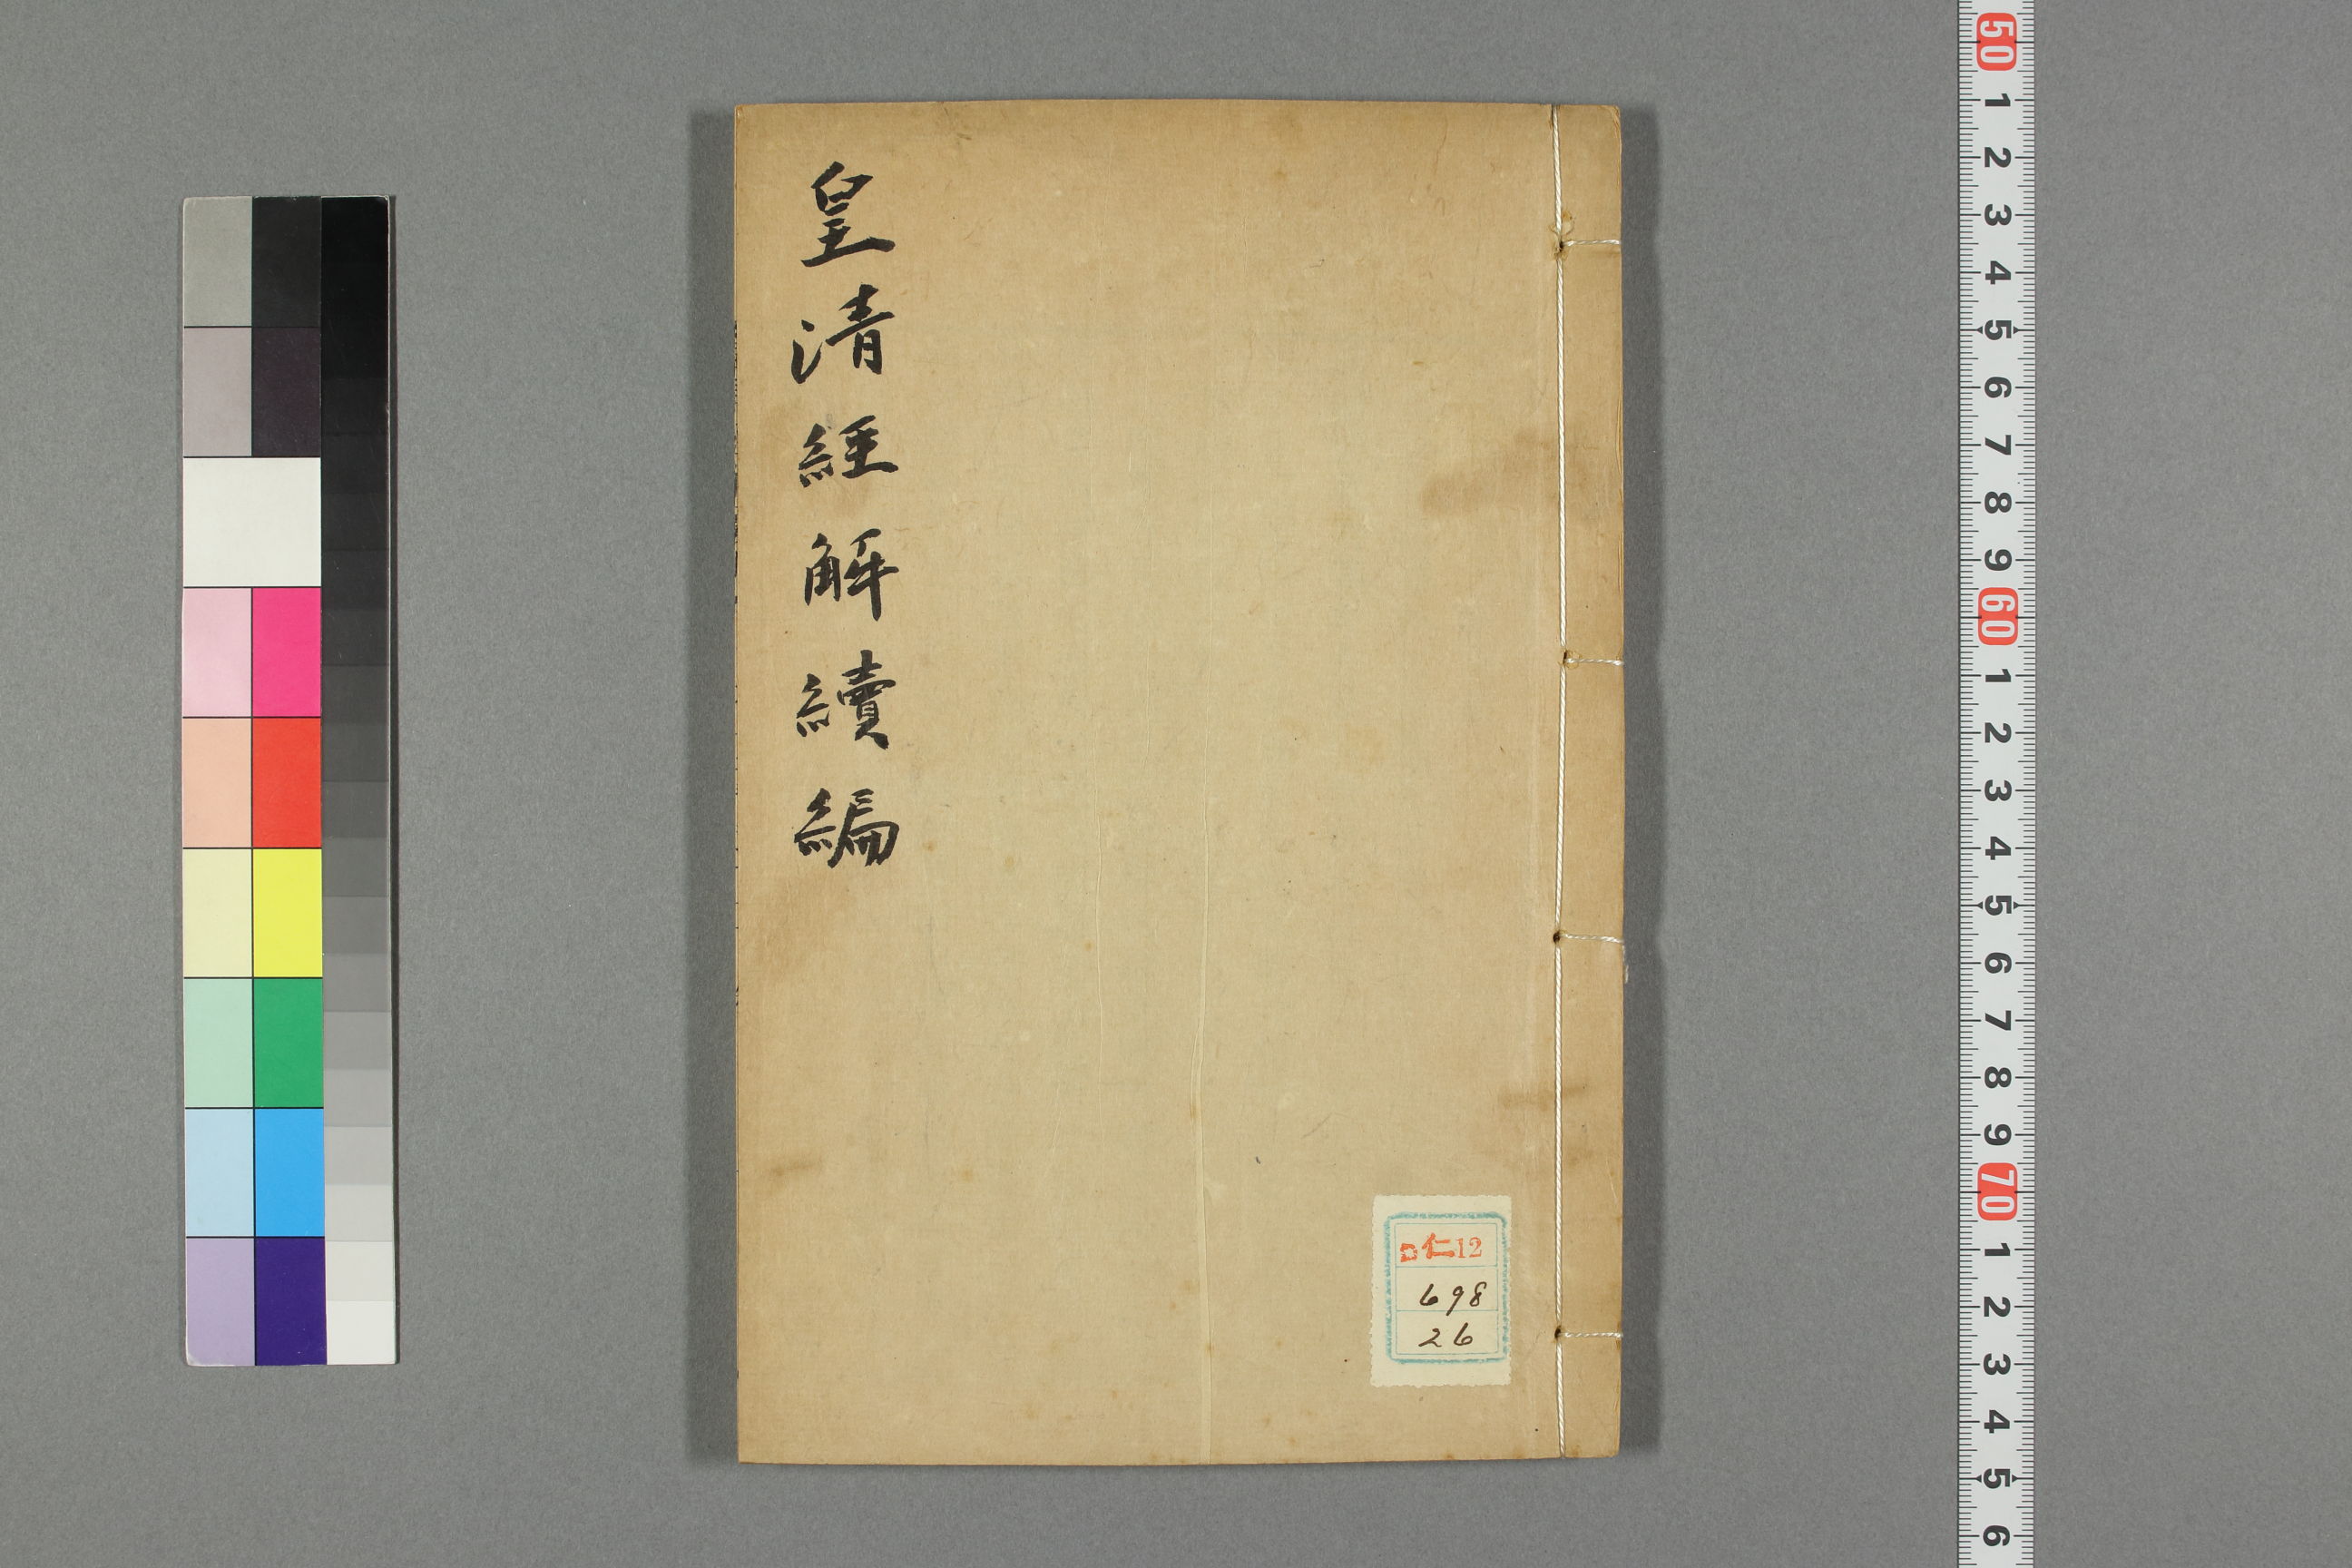 皇清經解續編
ロ仁12
698
26
50
1
2
3
4
5
6
7
8
9
60
1
2
3
4
5
6
7
8
9
70
1
2
3
4
5
6